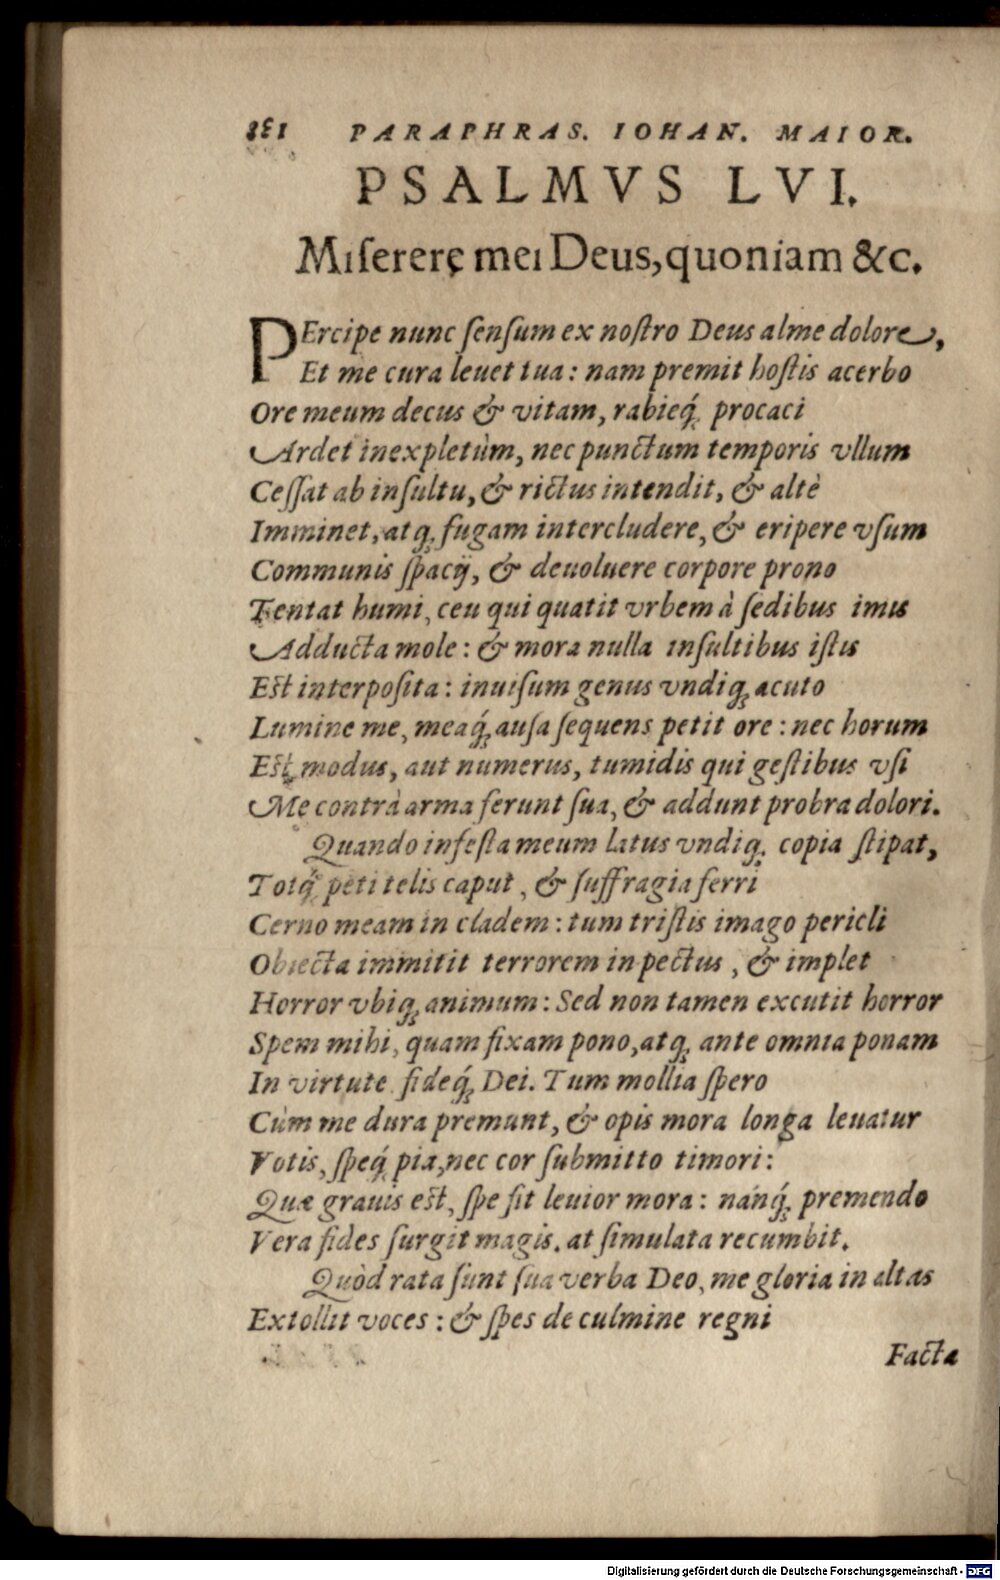 151 PARAPHRAS. IOHAN. MAIOR.
PSALMVS LVI.
Miſerere mei Deus, quoniam &c.
PErcipe nunc ſenſum ex noſtro Deus alme dolore,
Et me cura leuet tua: nam premit hoſtis acerbo
Ore meum decus & vitam, rabieq́; procaci
Ardet inexpletùm, nec punctum temporis vllum
Ceſſat ab inſultu, & rictus intendit, & altè
Imminet, atq; fugam intercludere, & eripere vſum
Communis ſpacij, & deuoluere corpore prono
Tentat humi, ceu qui quatit vrbem à ſedibus imis
Adducta mole: & mora nulla inſultibus iſtis
Eſt interpoſita: inuiſum genus vndiq; acuto
Lumine me, meaq́; auſa ſequens petit ore: nec horum
Eſt modus, aut numerus, tumidis qui geſtibus vſi
Me contrà arma ferunt ſua, & addunt probra dolori.
Quando infeſta meum latus vndiq; copia ſtipat,
Totq́; peti telis caput, & ſuffragia ferri
Cerno meam in cladem: tum triſtis imago pericli
Obiecta immitit terrorem in pectus, & implet
Horror vbiq; animum: Sed non tamen excutit horror
Spem mihi, quam fixam pono, atq; ante omnia ponam
In virtute fideq́; Dei. Tum mollia ſpero
Cùm me dura premunt, & opis mora longa leuatur
Votis, ſpeq́; pia, nec cor ſubmitto timori:
Quæ grauis eſt, ſpe fit leuior mora: nanq́; premendo
Vera fides ſurgit magis. at ſimulata recumbit.
Quòd rata ſunt ſua verba Deo, me gloria in altas
Extollit voces: & ſpes de culmine regni
Facta
Digitalisierung gefördert durch die Deutsche Forschungsgemeinschaft - DFG